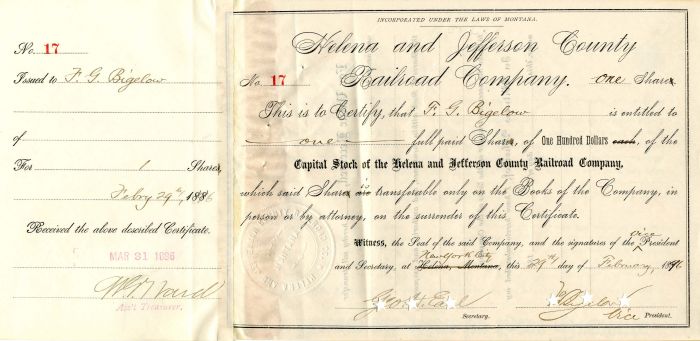 No. 17
Issued to F. G. Bigelow
of
For 1 Shares,
Febry 29th, 1896
Received the above described Certificate.
MAR 31 1896
Ass't Treasurer.
INCORPORATED UNDER THE LAWS OF MONTANA.
Helena and Jefferson County
No. 17 Railroad Company. one Shares
This is to Certify, that F. G. Bigelow is entitled to
one full paid Shares, of One Hundred Dollars each, of the
Capital Stock of the Helena and Jefferson County Railroad Company,
which said Shares is transferable only on the Books of the Company, in
person or by attorney, on the surrender of this Certificate.
Witness, the Seal of the said Company, and the signatures of the Vice President
and Secretary, at Helena, Montana, New York City this 29th day of February 1896
Geo. H. Earl
Secretary.
F. G. Bigelow
Vice President.